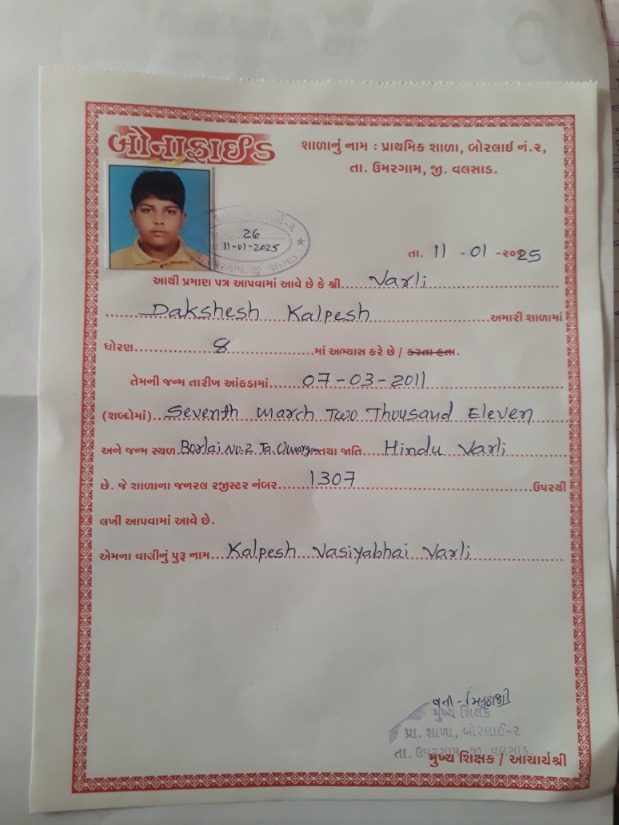 બોનાફાઈડ
શાળાનું નામ : પ્રાથમિક શાળા, બોરલાઈ નં.૨,
તા. ઉમરગામ, જી. વલસાડ.
26
11-01-2025
તા. 11 - 01 -૨૦25
આથી પ્રમાણ પત્ર આપવામાં આવે છે કે શ્રી.... Varli
Dakshesh Kalpesh અમારી શાળામાં
ધોરણ 8 માં અભ્યાસ કરે છે / કરતા હતા.
તેમની જન્મ તારીખ આંકડામાં 07-03-2011
(શબ્દોમાં) Seventh March Two Thousand Eleven
અને જન્મ સ્થળ. Borlai No.2 Ta. તથા જાતિ Hindu Varli
છે. જે શાળાના જનરલ રજીસ્ટર નંબર 1307 ઉપરથી
લખી આપવામાં આવે છે.
એમના વાલીનું પુરૂ નામ Kalpesh Vasiyabhai Varli
મુખ્ય શિક્ષક
પ્રા. શાળા, બોરલાઈ-૨
તા. ઉમરગામ જી. વલસાડ.
મુખ્ય શિક્ષક / આચાર્યશ્રી